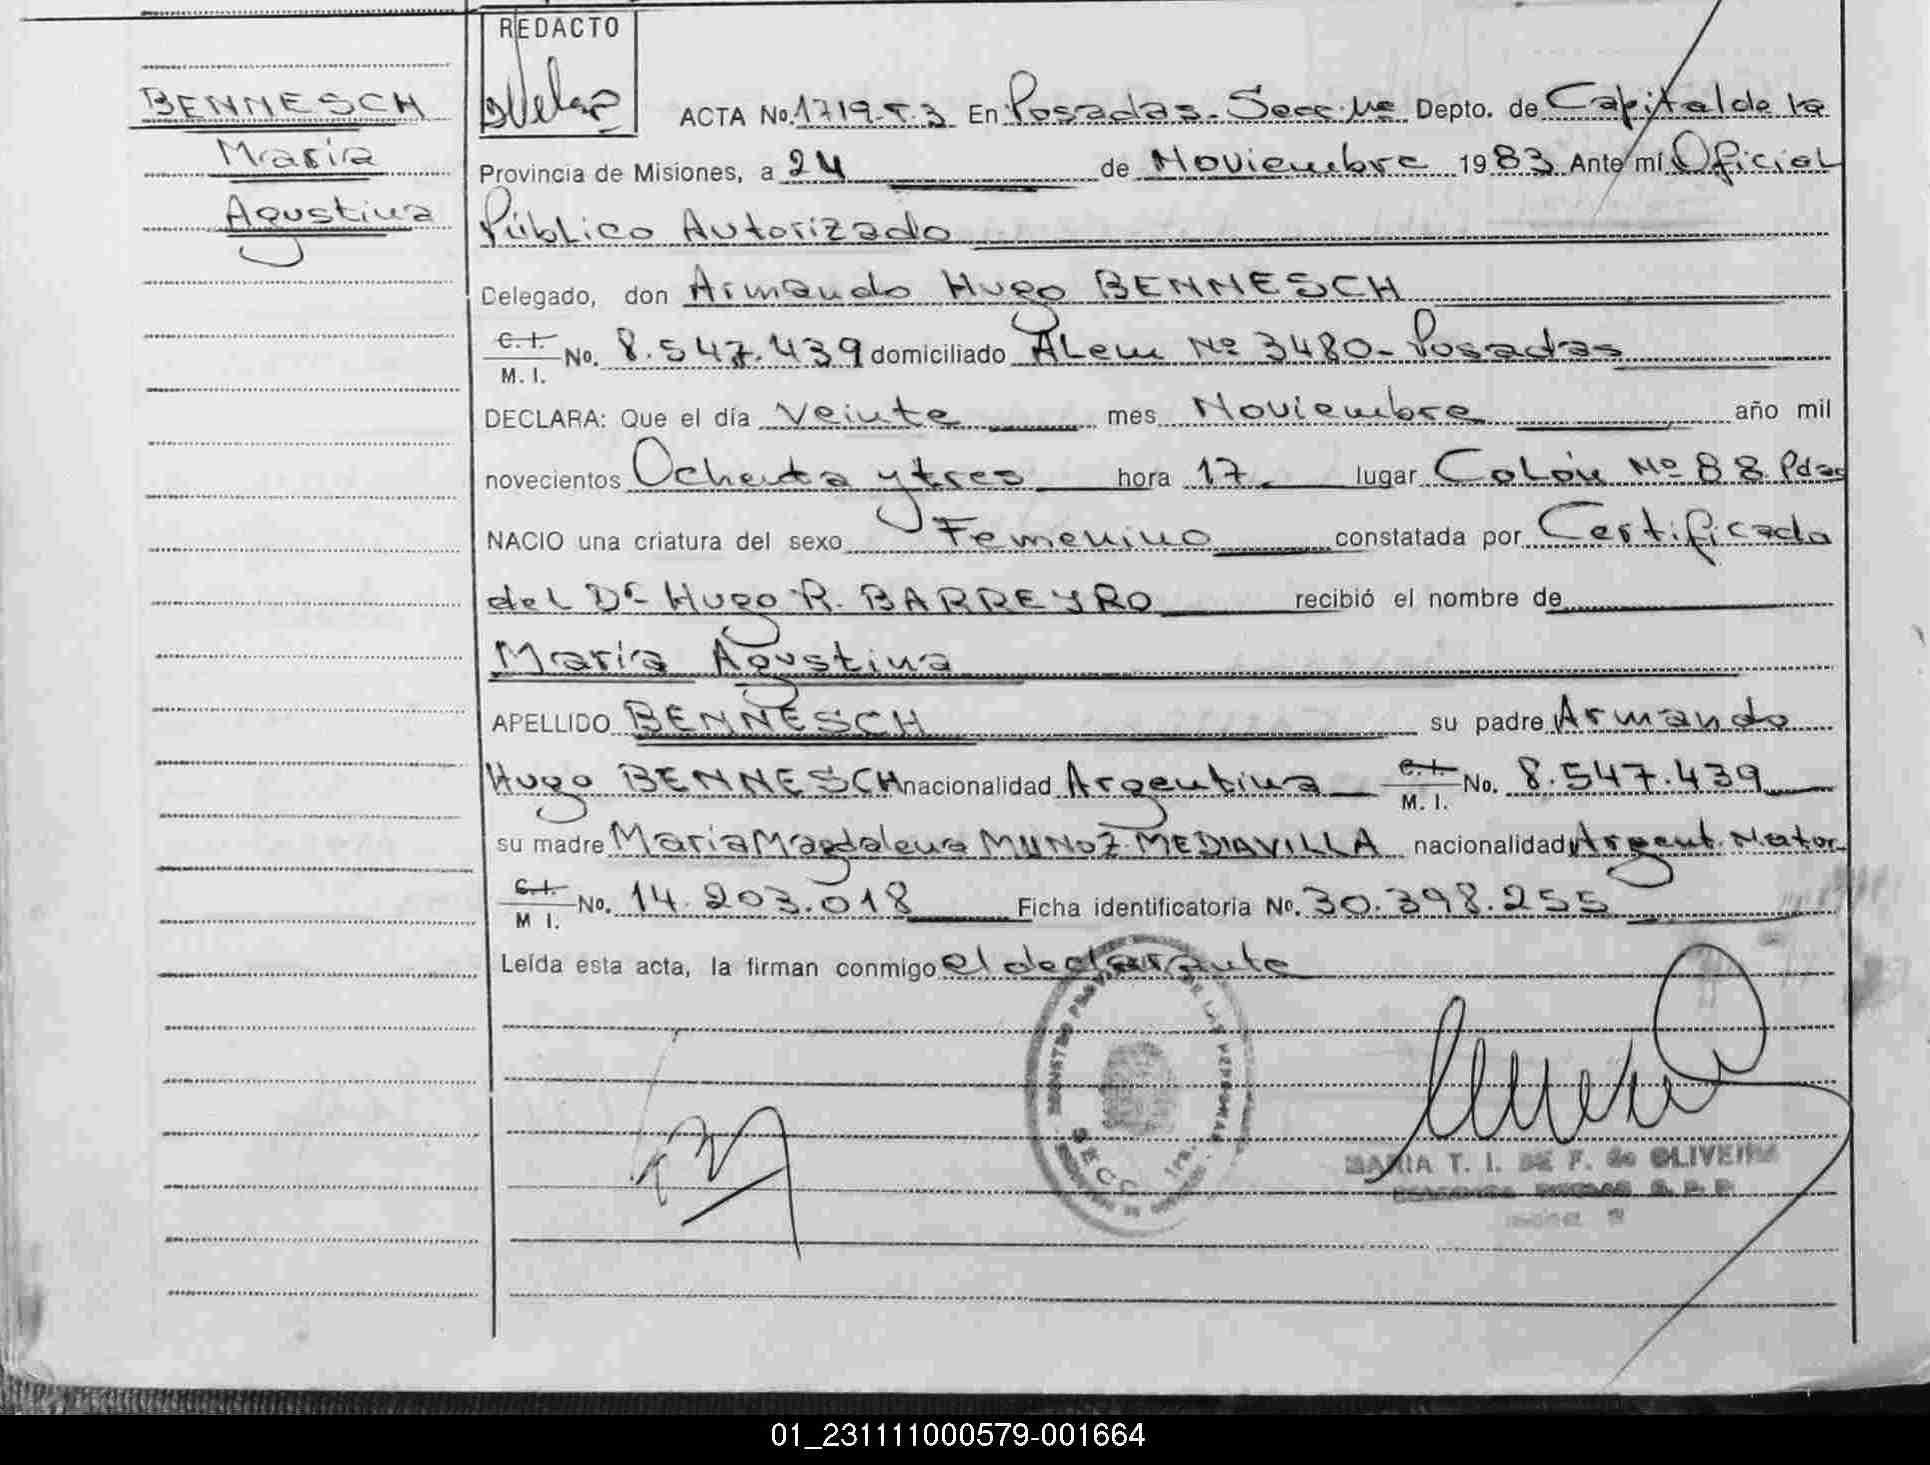 REDACTO
BENNESCH
María
Agustina
ACTA No. 1719-T.3 En Posadas-Secc 1ra Depto. de Capital de la
Provincia de Misiones, a 24 de Noviembre 1983 Ante mí Oficial
Público Autorizado
Delegado, don Armando Hugo BENNESCH
C.I. M.I. No. 8.547.439 domiciliado ALem Nº 3480-Posadas
DECLARA: Que el día veinte mes Noviembre año mil
novecientos Ochenta y tres hora 17 lugar Colón Nº 88 Pdas
NACIO una criatura del sexo Femenino constatada por Certificado
del Dr Hugo R. BARREYRO recibió el nombre de
María Agustina
APELLIDO BENNESCH su padre Armando
Hugo BENNESCH nacionalidad Argentina C.I. M.I. No. 8.547.439
su madre María Magdalena MUNOZ MEDIAVILLA nacionalidad Argent. Nator
C.I. M I. No. 14.203.018 Ficha identificatoria No. 30.398.255
Leída esta acta, la firman conmigo el declarante
REGISTRO PROV. DE LAS PERSONAS
SECC 1ra.
MARIA T. I. DE F. de OLIVEIRA
01_231111000579-001664